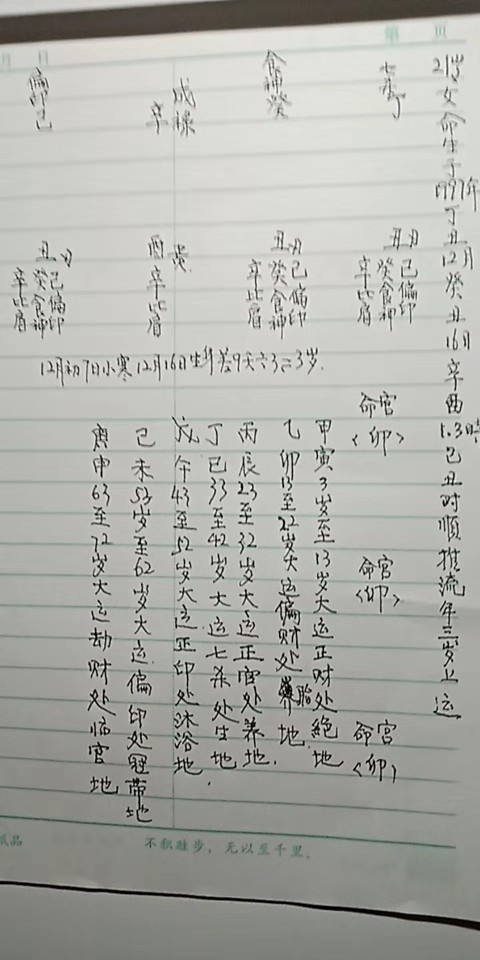 第 页
月 日
21岁女命生于1997年丁丑12月癸丑16日辛酉1.3時己丑时順推流年三岁上运
七杀丁
食神癸
戌禄
辛
偏印己
丑月
己偏印
癸食神
辛比肩
丑月
己偏印
癸食神
辛比肩
酉 贵
辛比肩
丑月
己偏印
癸食神
辛比肩
12月初7日小寒12月16日生年差9天六3=3岁.
命宫
<卯>
命宫
<卯>
命宫
<卯>
甲寅3岁至13岁大运正财处絕地
乙卯13至22岁大运偏财处胎地.
丙辰23至32岁大运正官处养地.
丁巳33至42岁大运七杀处生地.
戊午43至52岁大运正印处沐浴地
己未53岁至62岁大运偏印处冠带地
庚申63至72岁大运劫财处临官地
纸品
不积跬步，无以至千里.